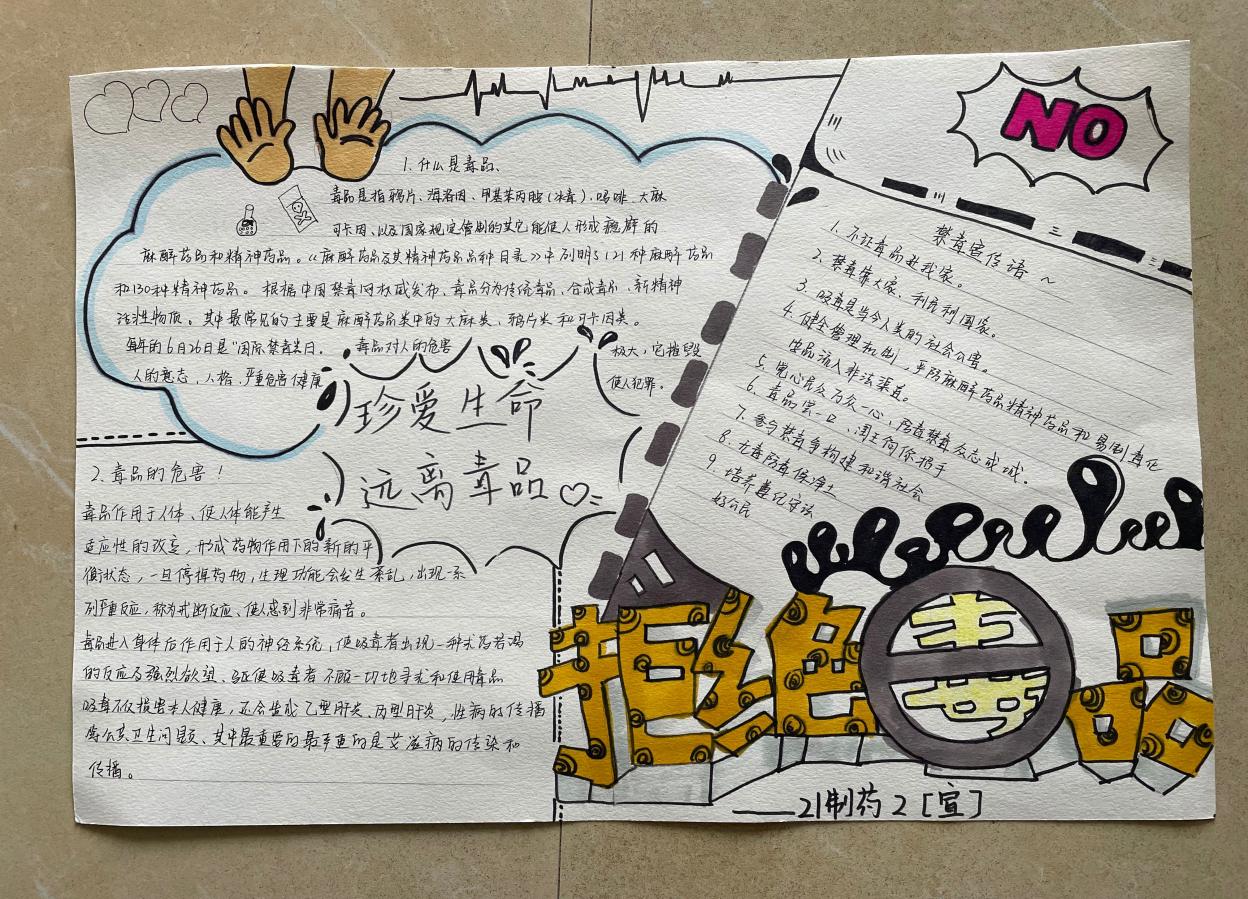 1. 什么是毒品、
毒品是指鸦片、海洛因、甲基苯丙胺(冰毒)、吗啡、大麻
可卡因、以及国家规定管制的其它能使人形成瘾癖的
麻醉药品和精神药品。《麻醉药品及其精神药品品种目录》中列明了121种麻醉药品
和130种精神药品。根据中国禁毒网权威发布、毒品分为传统毒品、合成毒品、新精神
活性物质。其中最常见的主要是麻醉药品类中的大麻类、鸦片类和可卡因类。
每年的6月26日是"国际禁毒日、
毒品对人的危害
极大,它摧毁
人的意志、人格、严重危害健康
使人犯罪。
珍爱生命
远离毒品
2. 毒品的危害!
毒品作用于人体、使人体能产生
适应性的改变,形成药物作用下的新的平
衡状态,一旦停掉药物,生理功能会发生紊乱,出现一系
列严重反应,称为戒断反应、使人感到非常痛苦。
毒品进入身体后作用于人的神经系统,使吸毒者出现一种求药若渴
的反应及强烈欲望、驱使吸毒者不顾一切地寻求和使用毒品
吸毒不仅损害本人健康,还会造成乙型肝炎、丙型肝炎,性病的传播
等公共卫生问题、其中最重要的最严重的是艾滋病的传染和
传播。
NO
禁毒宣传语~
1. 不让毒品进我家。
2. 禁毒靠大家、利民利国家。
3. 吸毒是当今人类的社会公害。
4. 健全管理机制,严防麻醉药品精神药品和易制毒化
学品流入非法渠道。
5. 党心民心万众一心,防毒禁毒众志成城.
6. 毒品尝一口、阎王向你招手
7. 参与禁毒争构建和谐社会
8. 无毒防毒保净土
9. 培养遵纪守法
好公民
拒绝毒品
——21制药2[宣]